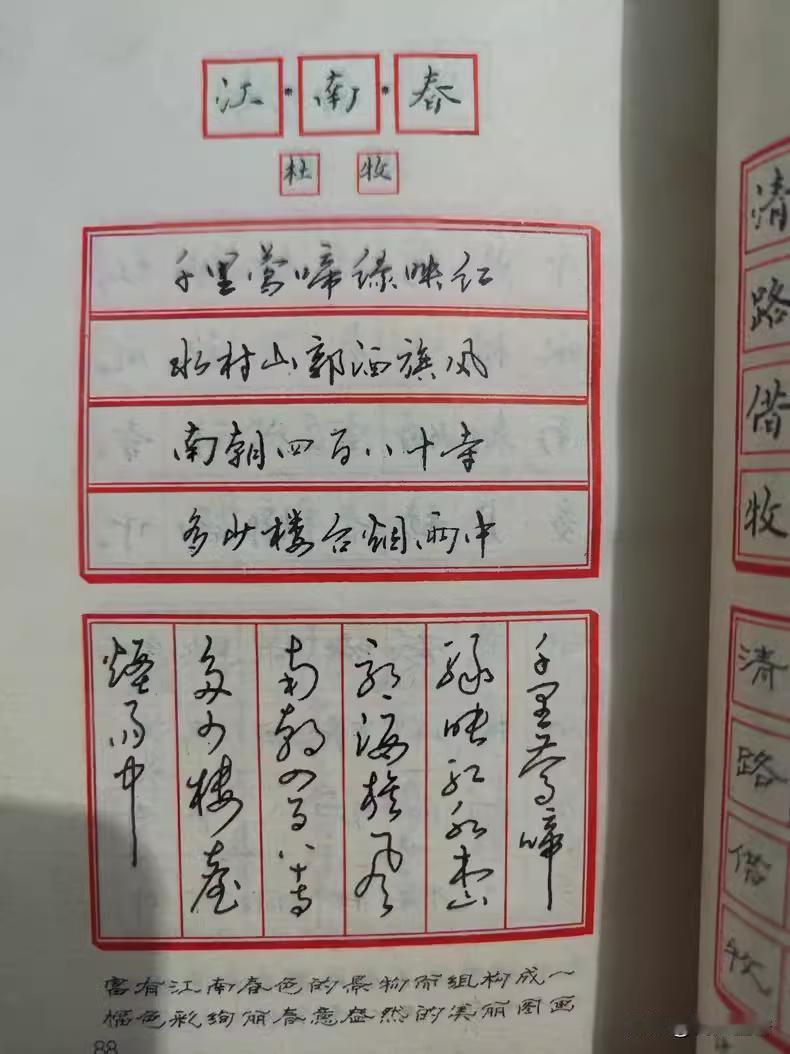 江·南·春
杜牧
千里莺啼绿映红
水村山郭酒旗风
南朝四百八十寺
多少楼台烟雨中
千里莺啼
绿映红水村山
郭酒旗风
南朝四百八十寺
多少楼臺
煙雨中
富有江南春色的景物而组构成一
幅色彩绚丽春意盎然的美丽图画
88
清
路
借
牧
清
路
借
牧